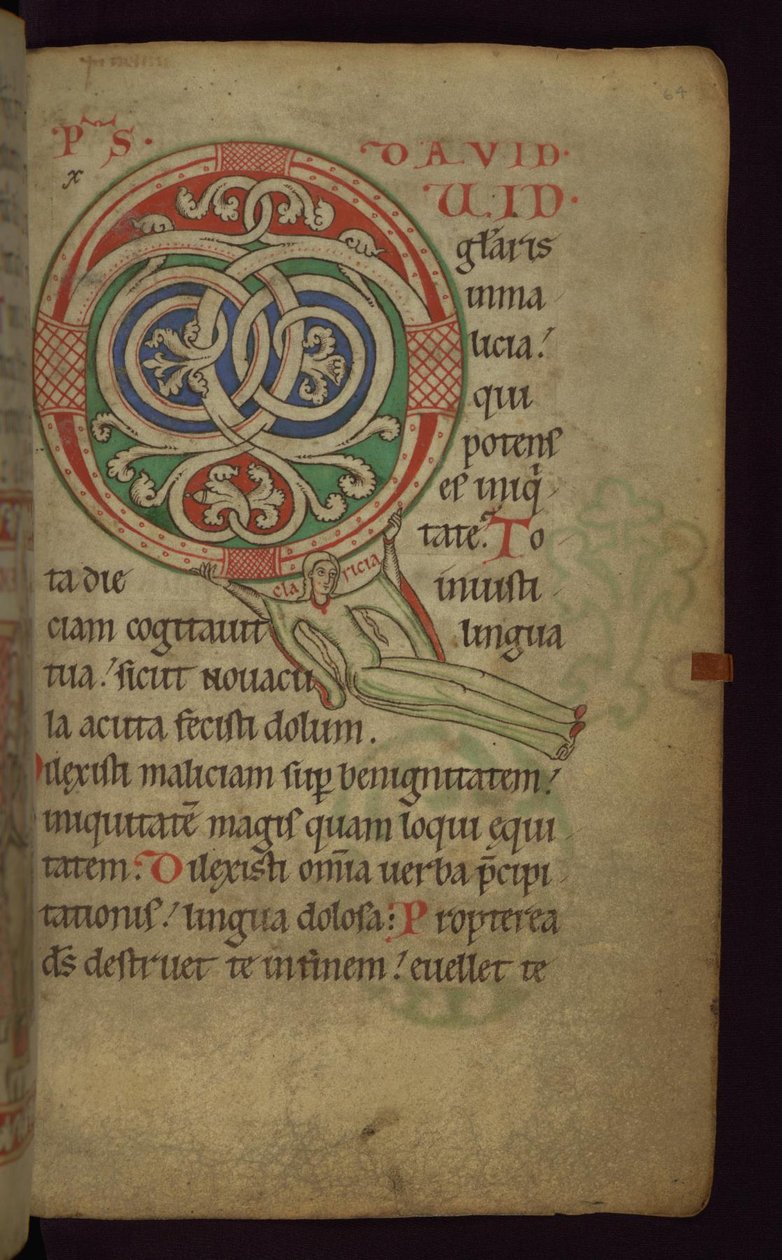 64
PS. DAVID.
x
QUID.
gl̄aris
inma
licia!
qui
potens
es iniq̄
tate. To
cla ricia
ta die iniusti
ciam cogitauit lingua
tua! sicut nouacu
la acuta fecisti dolum.
Dilexisti maliciam sup̄ benignitatem!
iniquitatē magis quam loqui ęqui
tatem: Dilexisti om̄ia uerba p̄cipi
tationis! lingua dolosa: Propterea
ds̄ destruet te infinem! euellet te